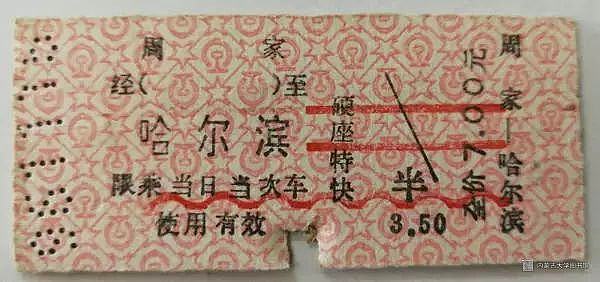 周家
经( )至
哈尔滨
限乘当日当次车
使用有效
硬座特快
半
3.50
全价7.00元
周家—哈尔滨
内蒙古大学图书馆